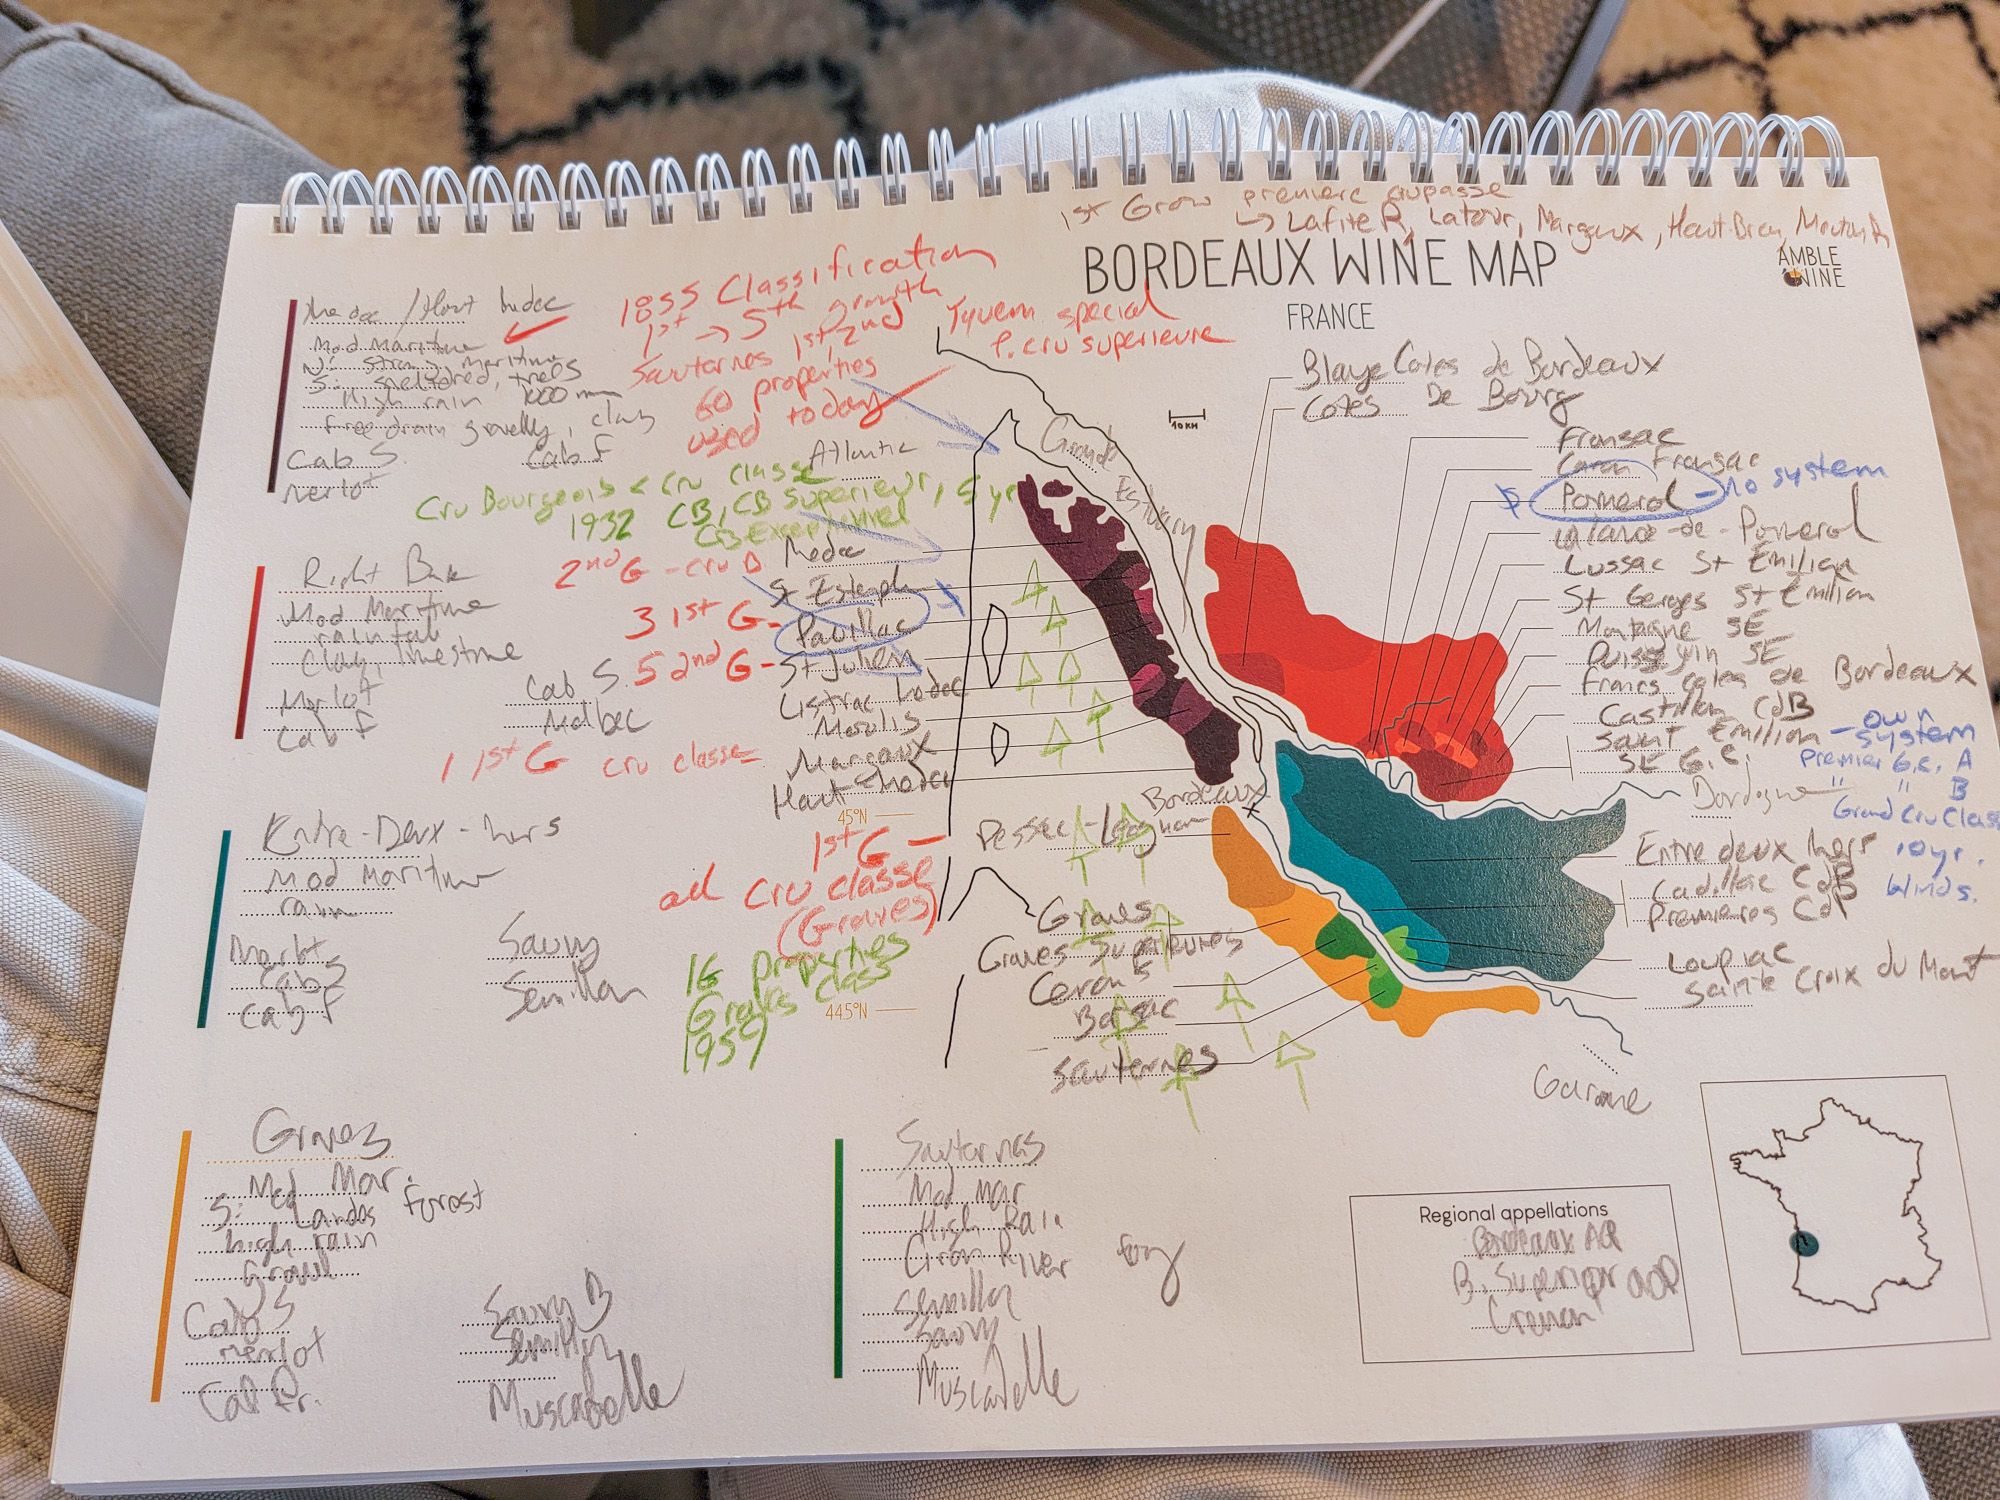 1st Grow premiere
↳ Lafite R, Latour, Margaux, Haut-Brion, Mouton R
BORDEAUX WINE MAP
FRANCE
AMBLE WINE
1855 Classification
1st → 5th growth
Sauternes 1st, 2nd
60 properties
used today
Yquem special
P. cru superieure
Medoc / Haut Medoc
Mod Maritime
N: strong maritime
S: sheltered, trees
High rain 1000 mm
free drain gravelly, clay
Cab S. Cab F
Merlot
Atlantic
Gironde Estuary
10 KM
Cru Bourgeois < cru classe
1932 CB, CB Superieur, 5 yr
CB Exceptionnel
Blaye Cotes de Bordeaux
Cotes De Bourg
Fronsac
Canon Fronsac
Pomerol - No system
Lalande-de-Pomerol
Lussac St Emilion
St Georges St Emilion
Montagne SE
Puisseguin SE
Francs Cotes de Bordeaux
Castillon CdB
Saint Emilion - own system
St G.C.
Premier G.C. A
" " B
Grand Cru Class
10 yr.
Dordogne
Right Bank
Mod Maritime
rainfall
Clay, limestone
Merlot Cab S.
Cab F Malbec
Medoc
2nd G - cru B St Estephe
3 1st G - Pauillac
5 2nd G - St Julien
Listrac Medoc
Moulis
1 1st G cru classe Margaux
Haut-Medoc
45°N
Bordeaux
1st G -
all Cru classe
(Graves)
16 properties
Graves class
1959
44.5°N
Pessac-Leognan
Graves
Graves Superieures
Cerons
Barsac
Sauternes
Entre deux Mers
Cadillac CdB
Premieres CdB
Loupiac
Sainte Croix du Mont
Garonne
Entre-Deux-Mers
Mod Maritime
rain
Merlot Savvy
Cab S Semillon
Cab F
Graves
Mod Mar.
S: Landes forest
high rain
Gravel
Cab S Savvy B
Merlot Semillon
Cab Fr. Muscadelle
Sauternes
Mod Mar
High Rain
Ciron River fog
Semillon
Savvy
Muscadelle
Regional appellations
Bordeaux AO
B. Superior AOP
Cremant